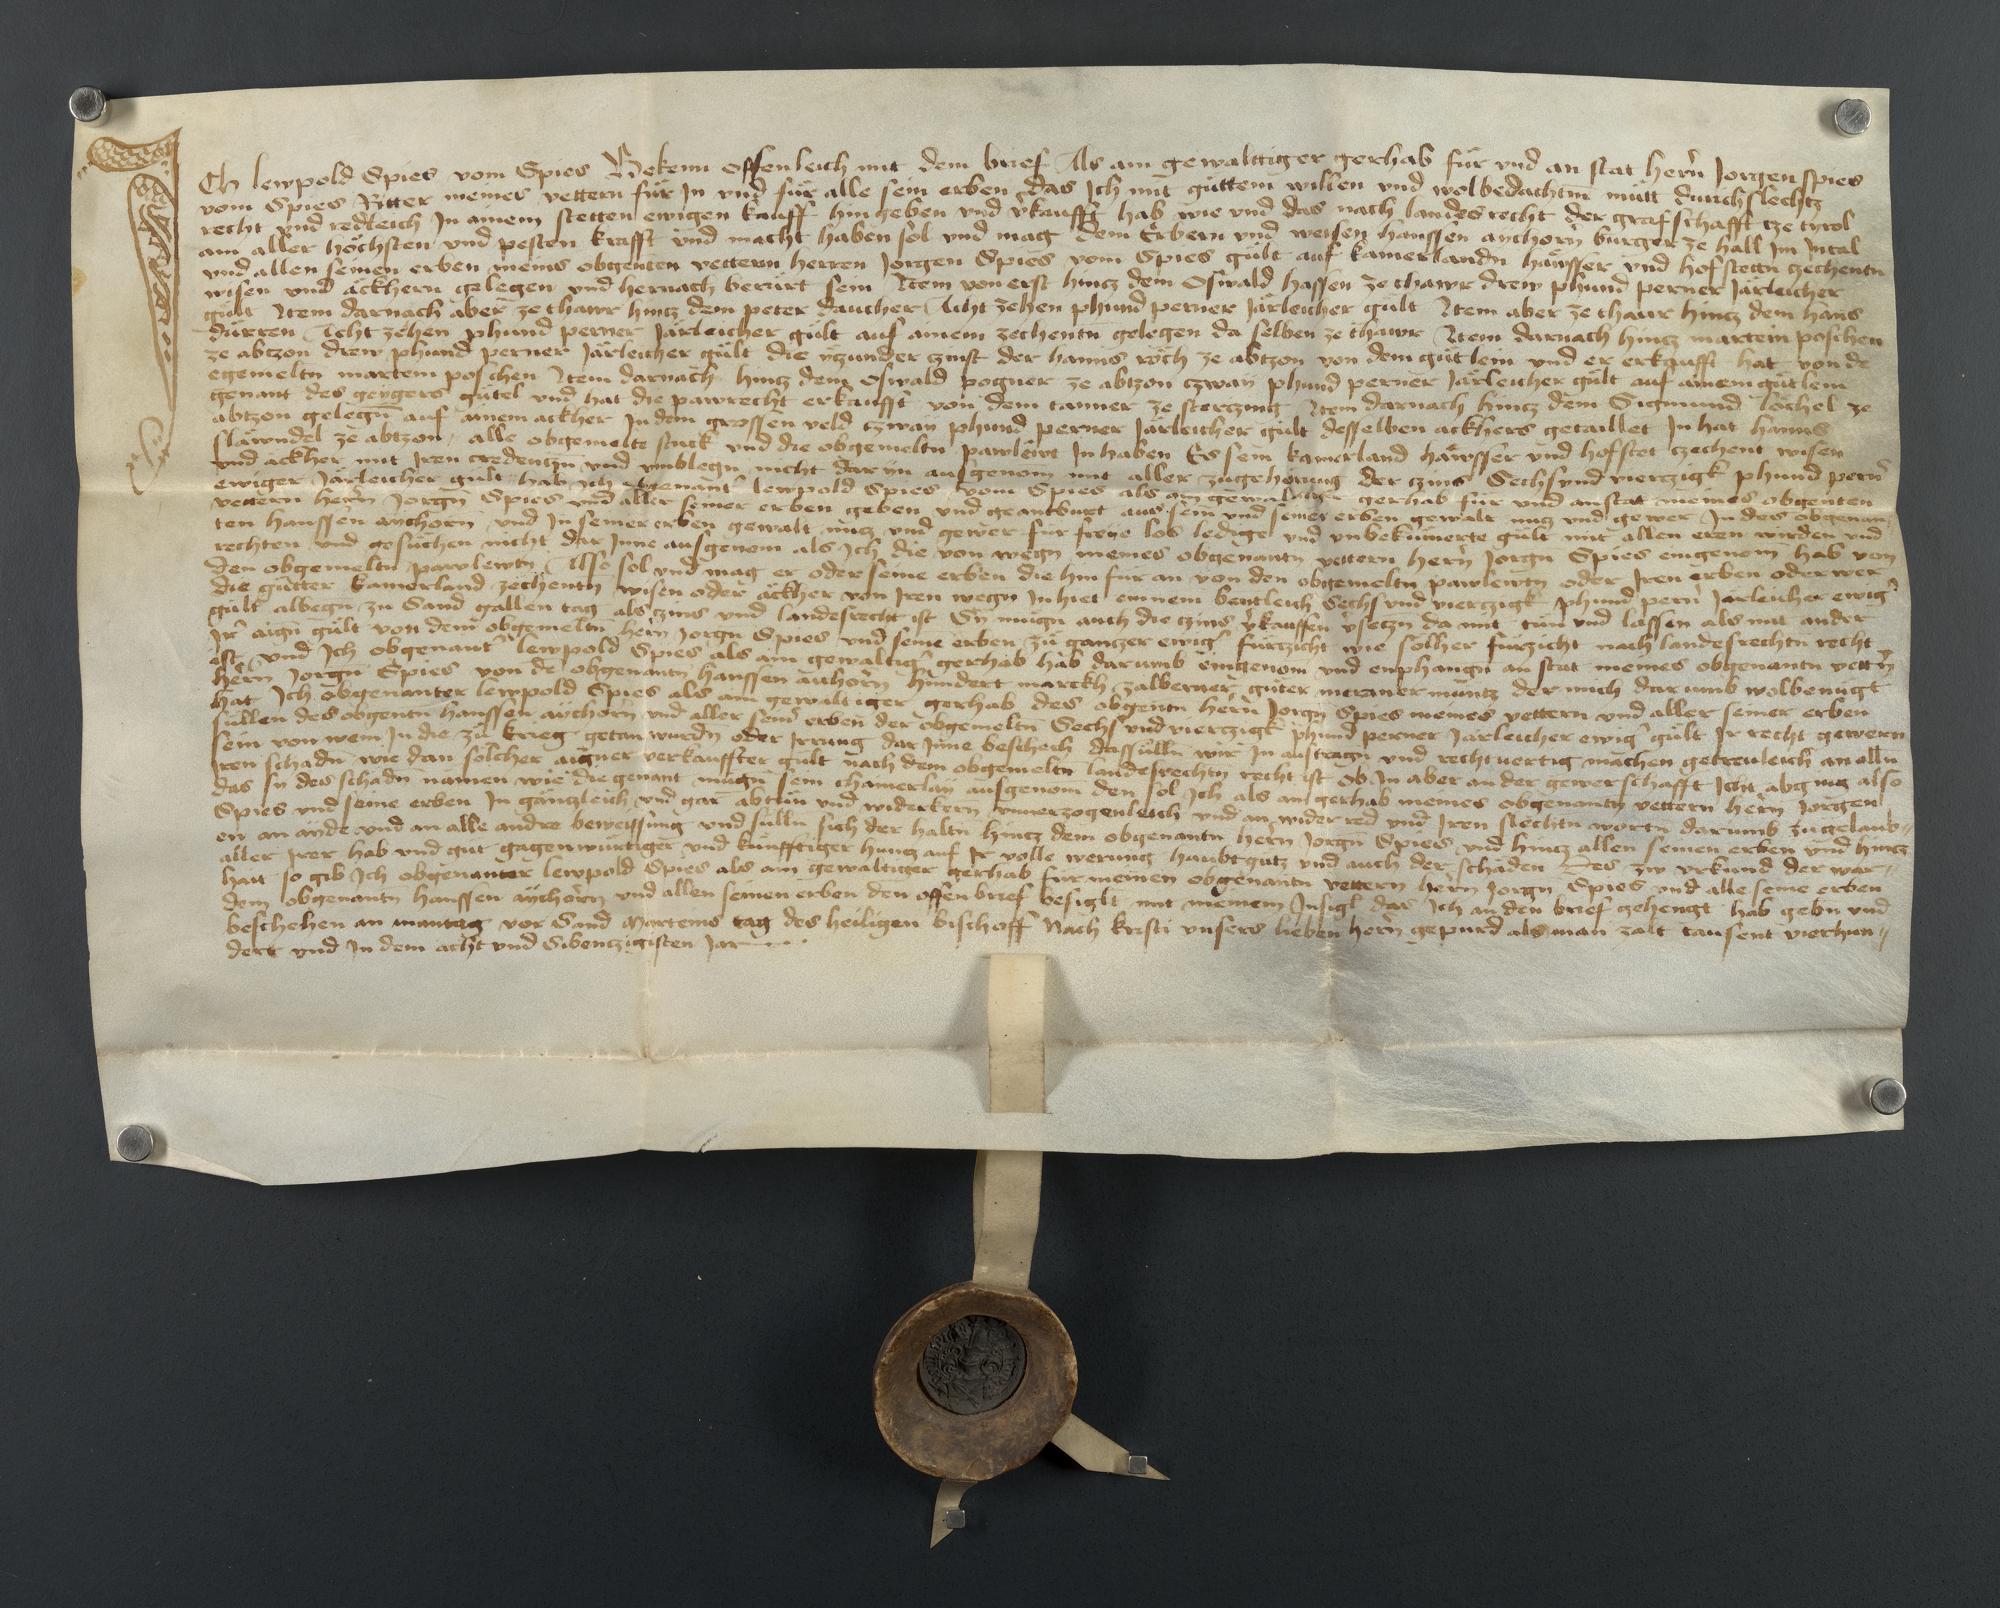 Ich lewpold Spies vom Spies Bekenn offenleich mit dem brief Als ain gewalttiger gerhab für vnd an stat herñ Jorgen spies
vom Spies Ritter meines vettern für In vnd für alle sein erben das Ich mit güttem willen vnd wolbedachtm̄ mütt durchslechtz
recht vnd redleich In ainem stetten ewigen kauff hingeben vnd v̉kaufft hab wie vnd das nach landes recht der grafschafft tze tyrol
am aller höchsten vnd pesten krafft vnd macht haben sol vnd mag dem Erbern vnd weisen hanssen aychorn̄ burger ze hall Im Intal
vnd allen seinen erben meins obgenten vettern herren Jorgen Spies vom Spies gült auf kamerlandn̄ häwsser vnd hofstettn zechentn
wisen vnd äckhern gelegen vnd hernach berürt sein Item von erst hincz dem Oswald hassen ze thawr drew phund perner Järleicher
gült Item darnach aber ze thawr hincz dem peter daucher Acht zehen phund perner Järleicher gült Item aber ze thaur hincz dem hans
dürren Acht zehen phund perner Järleicher gült auf ainem zechentn gelegen da selben ze thawr Item darnach hincz martein poschen
ze abtzon drew phund perner Järleicher gült die yczunder czinst der hanns röch ze abtzon von dem gütlein vnd er erkaufft hat von de
egemeltn martein poschen Item darnach hincz dem Oswald pogner ze abtzon czwaÿ phund perner Järleicher gült auf ainem gütlein
genant des geygers gütel vnd hat die pawrecht erkaufft von dem tanner ze sterczing Item darnach hincz dem Sigmund löchel ze
abtzon gelegn̄ auf ainem ackher In dem grossen veld czwaÿ phund perner Järleicher gült desselben ackhers getaillet In hat hanns
släwndel ze abtzon alle obgemelte stuck vnd die obgemeltn pawlewt Inhaben Es sein kamerland häwsser vnd hofstet zechent wisen
vnd äckher mit Iren credentzn̄ vnd vmblegn nicht dar Inn ausgenom̄ mit aller zugehörung der czins Sechs vnd vierczigk phund pern̉
ewiger Järleicher gült hab ich obgenant̉ lewpold Spies vom Spies als ain gewaltiger gerhab für vnd anstat meines obgenten
vettern herñ Jorgn̄ Spies vnd aller seiner erben geben vnd geantburt aus sein vnd seiner erben gewalt nucz vnd gewer In des obgenan⸗
ten hanssen aychorn̄ vnd In seiner erben gewalt nucz vnd gewer für freye los ledige vnd vnbekümerte gült mit allen eren wirden vnd
rechten vnd gesüchen nicht dar Inne ausgenom als Ich die von wegn meines obgenantn vettern herñ Jorgn̄ Spies eingenom̄ hab von
den obgemeltn pawlewtn Also sol vnd mag er oder seine erben die hin für an von den obgemeltn pawlewtn oder Iren erben oder wer
die gütter kamerland zechentn wisen oder äckher von Iren wegn Inhiet einnem bentleich Sechs vnd vierczigk phund pern̉ Järleicher ewig̉
gült albegn̄ zu Sand gallen tag als czins vnd landesrecht ist Sy mügn auch die czins v̉kauffen v̉seczn da mit tün vnd lassen als mit ander
Ir̉ aign̄ gült von dem obgemeltn herñ Jorgn Spies vnd seine erben zu ganczer ewig̉ fürczicht wie solher fürzicht nach landesrechtn recht
ist vnd Ich obgenant̉ lewpold Spies als ain gewaltig̉ gerhab hab darumb eingenom̄ vnd enphangn̄ an stat meines obgenantn vettn̉
herñ Jorgn̄ Spies von de obgenantn hanssen aichorn̄ hundert marckh zalberner güter meraner müntz der mich dar umb wolbenügt
hat Ich obgenanter lewpold Spies als ain gewaltiger gerhab des obgentn herñ Jorgn Spies meines vettern vnd aller seiner erben
süllen des obgentn hanssen aychorn̄ vnd aller sein̉ erben der obgemeltn Sechs vnd vierczigk phund perner Järleicher ewig̉ gült Ir recht gewern
sein von wem In die zu krieg getan wurdn̄ oder Irrung dar Inne beschech das sülln wir In austragn vnd rechtuertig machen getreuleich an alln
Iren schadn̄ wie dan solcher aigner verkauffter gült nach dem obgemeltn landesrechtn recht ist ob In aber an der gewerschafft Icht abging also
das sy des schadn namen wie die genant mügn̄ sein chainerlaÿ ausgenom den sol Ich als ain gerhab meines obgenantn vettern herñ Jorgen
Spies vnd seine erben In gänczleich vnd gar abtün vnd widerkern vnuerzogenleich vnd an wider red vnd Iren slechtn wortn darumb zu gelaub⸗
en an ayde vnd an alle andre beweÿsung vnd sülln sich der haltn hincz dem obgenantn herñ Jorgn̄ Spies vnd hincz allen seinen erben vnd hincz
aller Irer hab vnd gut gagenwürtiger vnd künfftiger huncz auf Ir volle werung haubtgutz vnd auch der schäden Des zw vrkund der war⸗
hait so gib Ich obgenanter lewpold Spies als ain gewaltiger gerhab für meinen obgenantn vettern herñ Jorgn Spies vnd alle seine erben
dem obgenantn hanssen aychorn̄ vnd allen seinen erben den offen brief besiglt mit meinem Insigl das Ich an den brief gehengt hab gebn vnd
beschehen an mantag vor Sand Marteins tag des heiligen bischoff Nach kristi vnsers lieben herñ gepurd als man zalt tausent vierhun⸗
dert vnd In dem acht vnd Sibenczigisten Jar